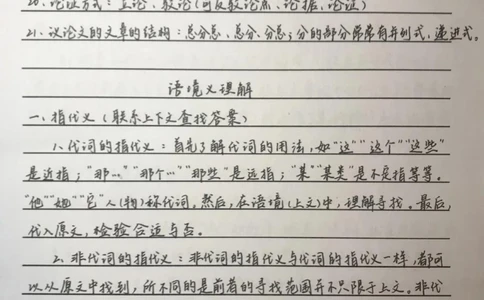 20、论证方式：立论、驳论(可反驳论点、论据、论证)
21、议论文的文章的结构：总分总、总分、分总；分的部分常常有并列式、递进式。
语境义理解
一、指代义（联系上下文查找答案）
1、代词的指代义：首先了解代词的用法，如“这”“这个”“这些”
是近指；“那…”“那个…”“那些”是远指；“某”“某类”是不定指等等。
“他”“她”“它”人(物)称代词。然后，在语境(上文)中，理解寻找。最后，
代入原文，检验合适与否。
2、非代词的指代义：非代词的指代义与代词的指代义一样，都可
以从原文中找到，所不同的是前者的寻找范围并不只限于上文，非代